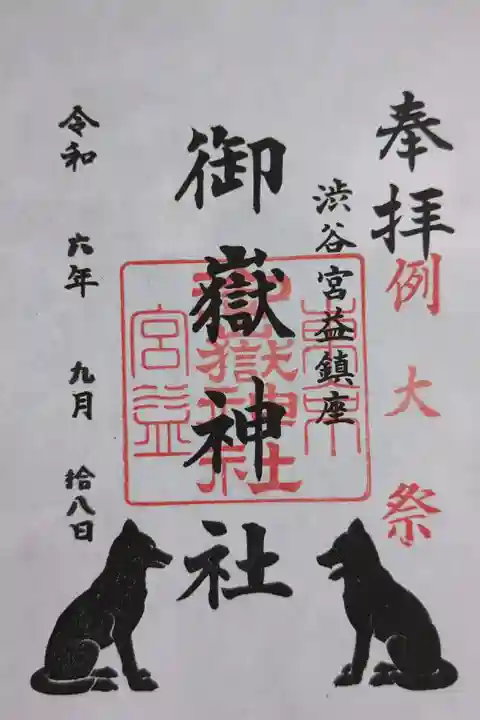 奉拝
例大祭
渋谷宮益鎮座
御嶽神社
東京
御嶽神社
宮益
令和 六年 九月 拾八日